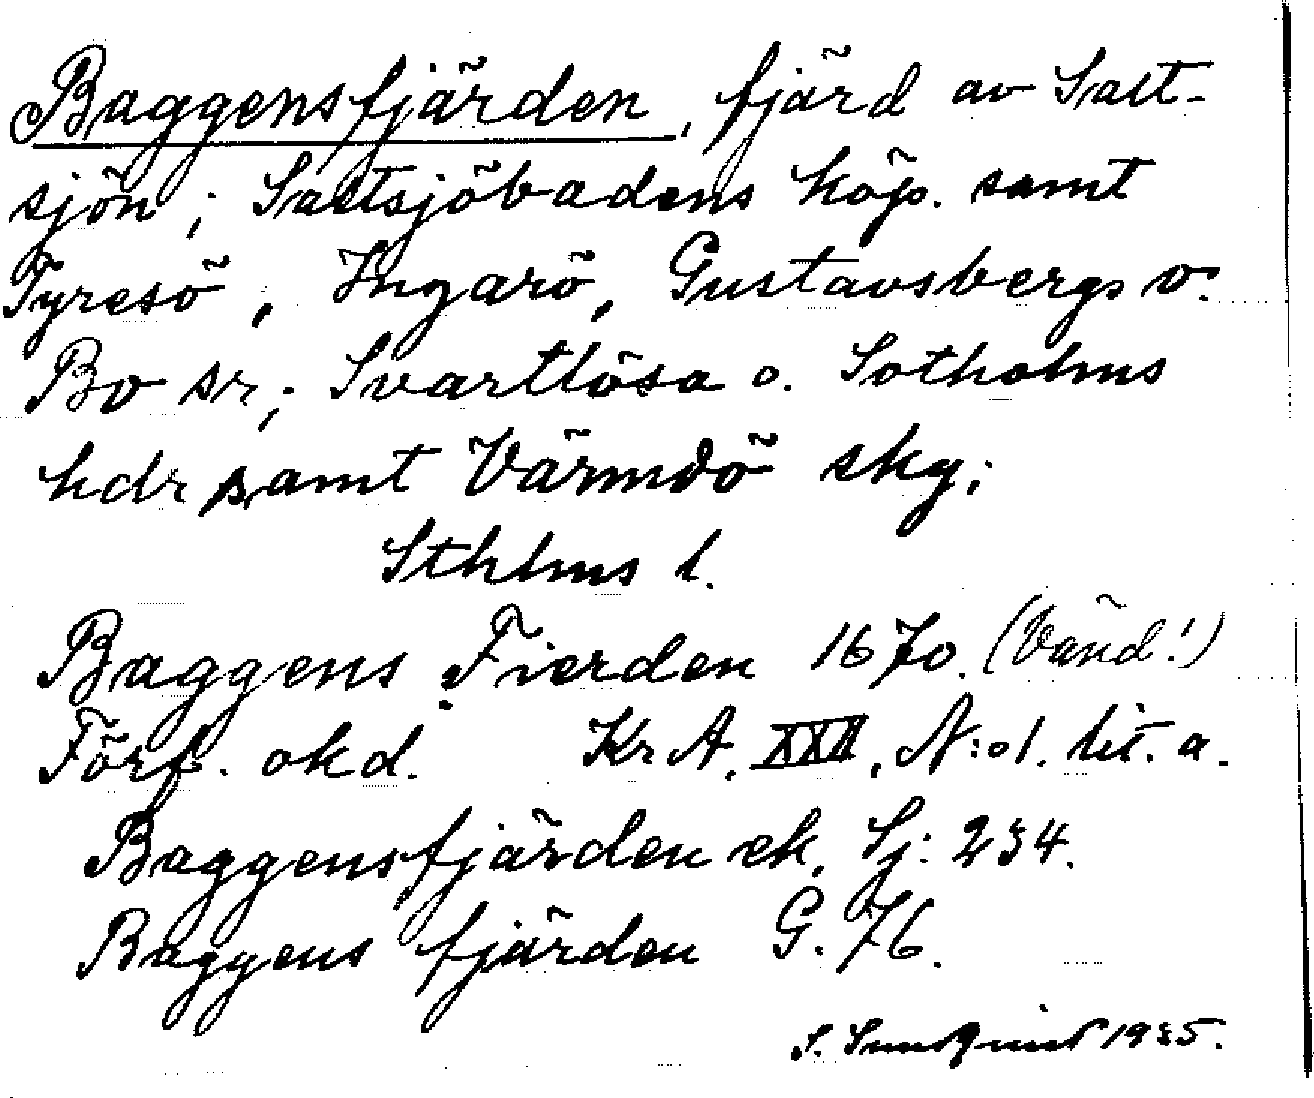 Baggensfjärden, fjärd av Salt-
sjön; Saltsjöbadens köp. samt
Tyresö, Ingarö, Gustavsbergs o.
Bo sr; Svartlösa o. Sotholms
hdr samt Värmdö skg;
Sthlms l.
Baggens Fierden 1670. (Vänd!)
Förf. okd. Kr A. XXII, N:o 1. lit. a.
Baggensfjärden ek. Sj: 234.
Baggens fjärden G. 76.
S. Sundquist 1935.